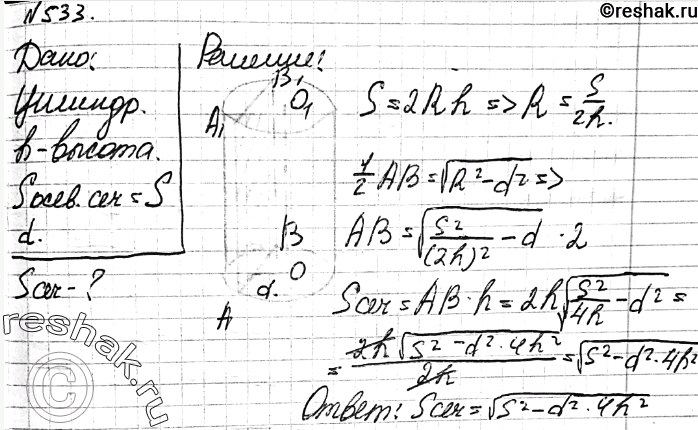 ©reshak.ru
N533.
Дано:
Цилиндр.
h-высота.
Sосев.сеч = S
d.
Sсеч - ?
Решение:
B₁
O₁
A₁
B
O
d.
A
S = 2Rh => R = S/2h.
1/2 AB = √(R² - d²) =>
AB = √(S²/(2h)² - d) · 2
Sсеч = AB · h = 2h√(S²/4h - d²) =
= 2h√(S² - d² · 4h²)/2h = √(S² - d² · 4h²)
Ответ: Sсеч = √(S² - d² · 4h²)
reshak.ru
©